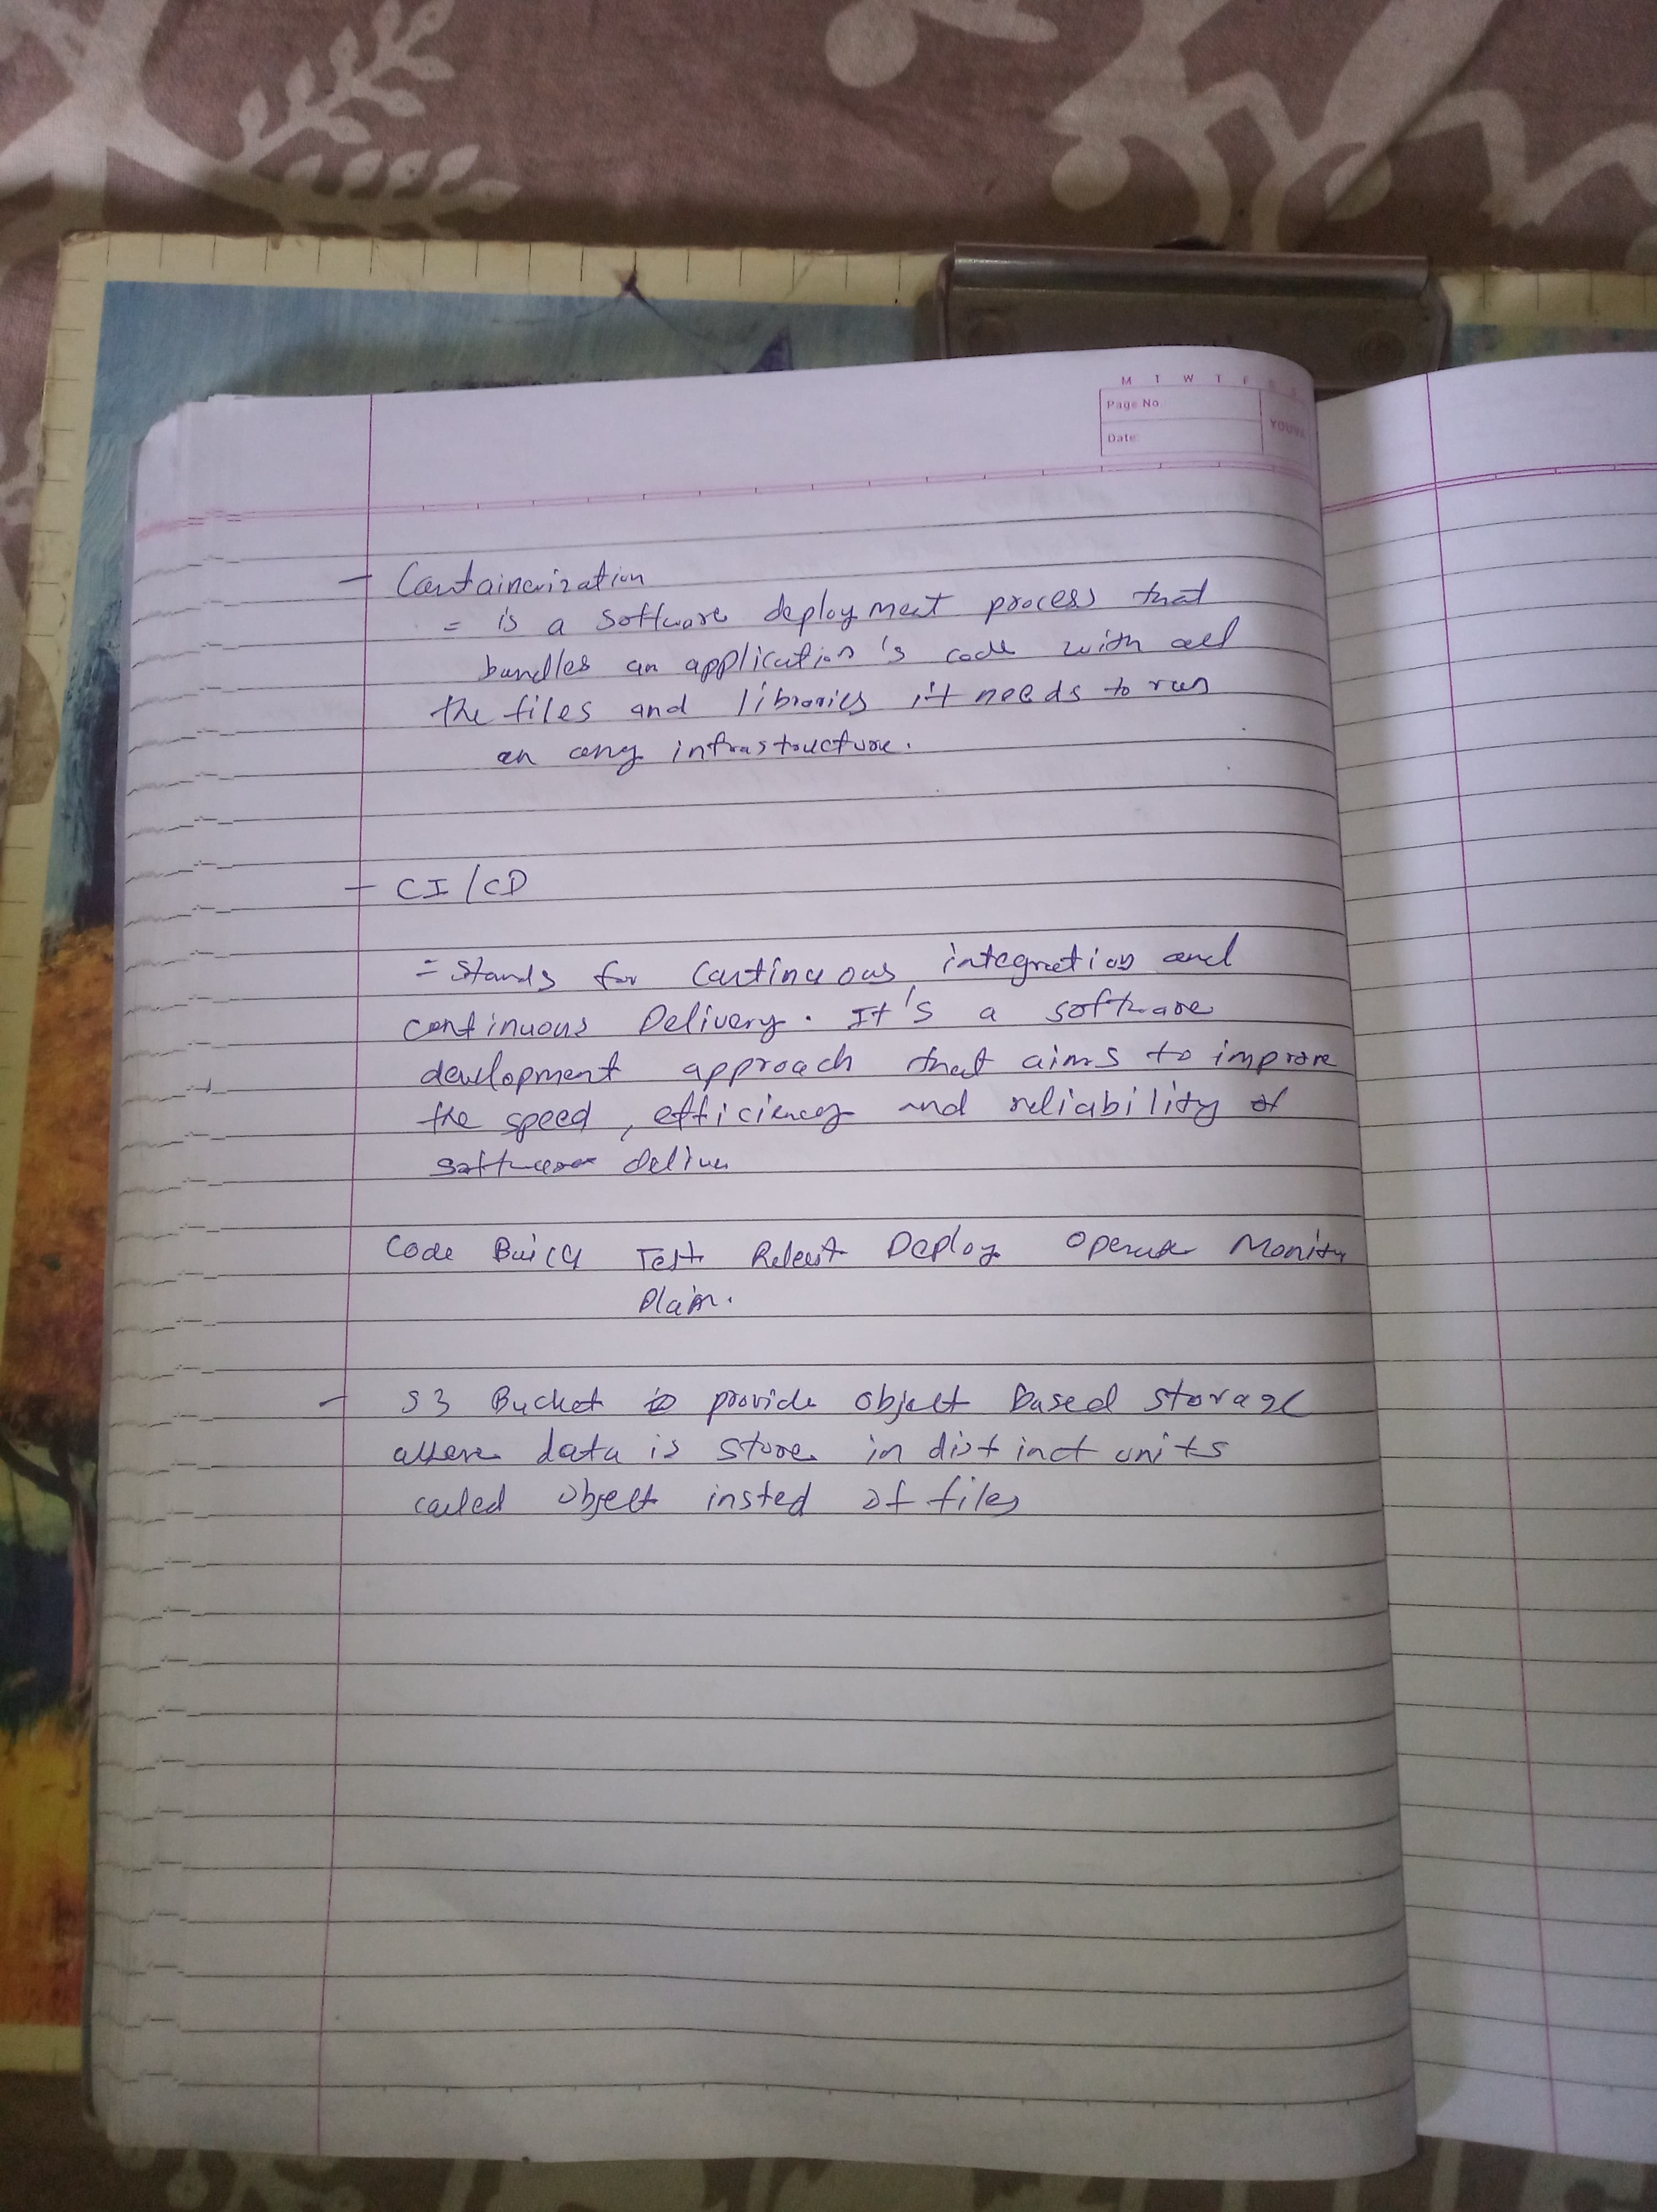 M T W T F S S
Page No
Date:
YOUVA
- Containerization
= is a software deployment process that
bundles an application's code with all
the files and libraries it needs to run
on any infrastructure.
- CI/CD
= Stands for Continuous integration and
continuous Delivery. It's a software
development approach that aims to improve
the speed, efficiency and reliability of
software
Code Test Deploy Operate Monitor
Plan.
- S3 Bucket provide object based storage
where data is store in distinct units
called object insted of files